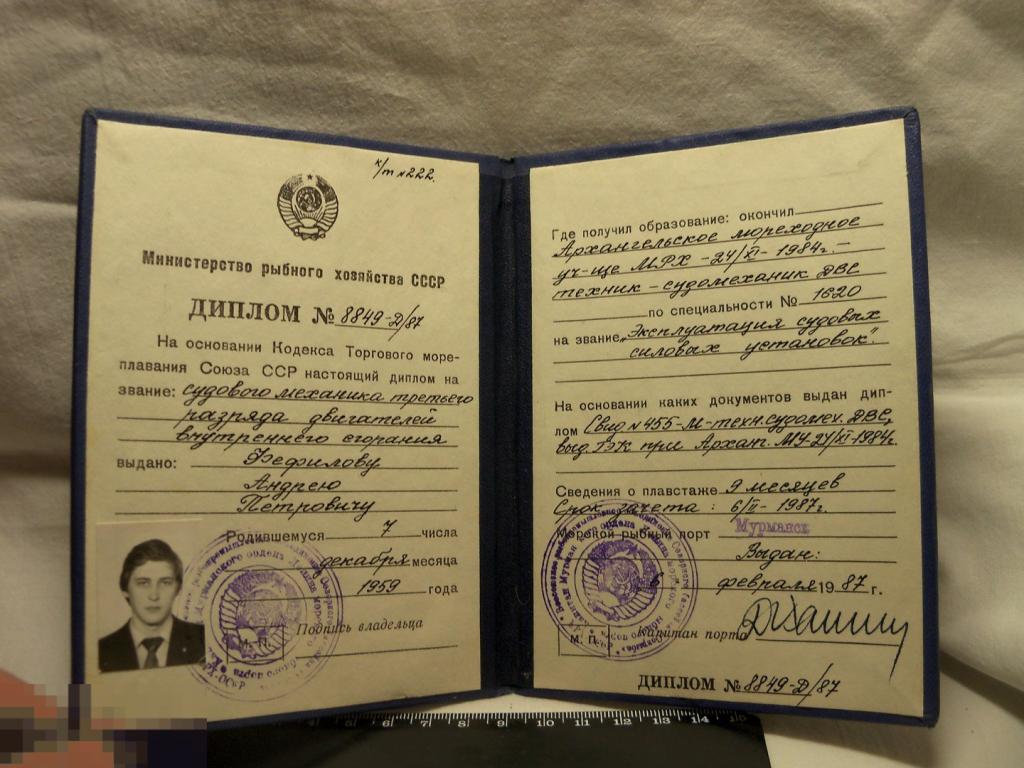 к/т №222.
Министерство рыбного хозяйства СССР
ДИПЛОМ № 8849-Д/87
На основании Кодекса Торгового море-
плавания Союза ССР настоящий диплом на
звание: судового механика третьего
разряда двигателей
внутреннего сгорания
выдано: Фефилову
Андрею
Петровичу
Родившемуся 7 числа
декабря месяца
1959 года
Подпись владельца
М. П.
Где получил образование: окончил
Архангельское мореходное
уч-ще МРХ - 24/XI - 1984г. -
техник - судомеханик ДВС
по специальности № 1620
на звание „Эксплуатация судовых
силовых установок."
На основании каких документов выдан дип-
лом Свид №455-М-техн.судомех. ДВС,
выд. ГЭК при Арханг. МУ-24/XI-1984г.
Сведения о плавстаже 9 месяцев
Срок зачета: 6/II - 1987г.
Морской рыбный порт Мурманск
Выдан:
6 февраля 1987 г.
М. П. Капитан порта
ДИПЛОМ № 8849-Д/87
6 7 8 9 10 11 12 13 14 15